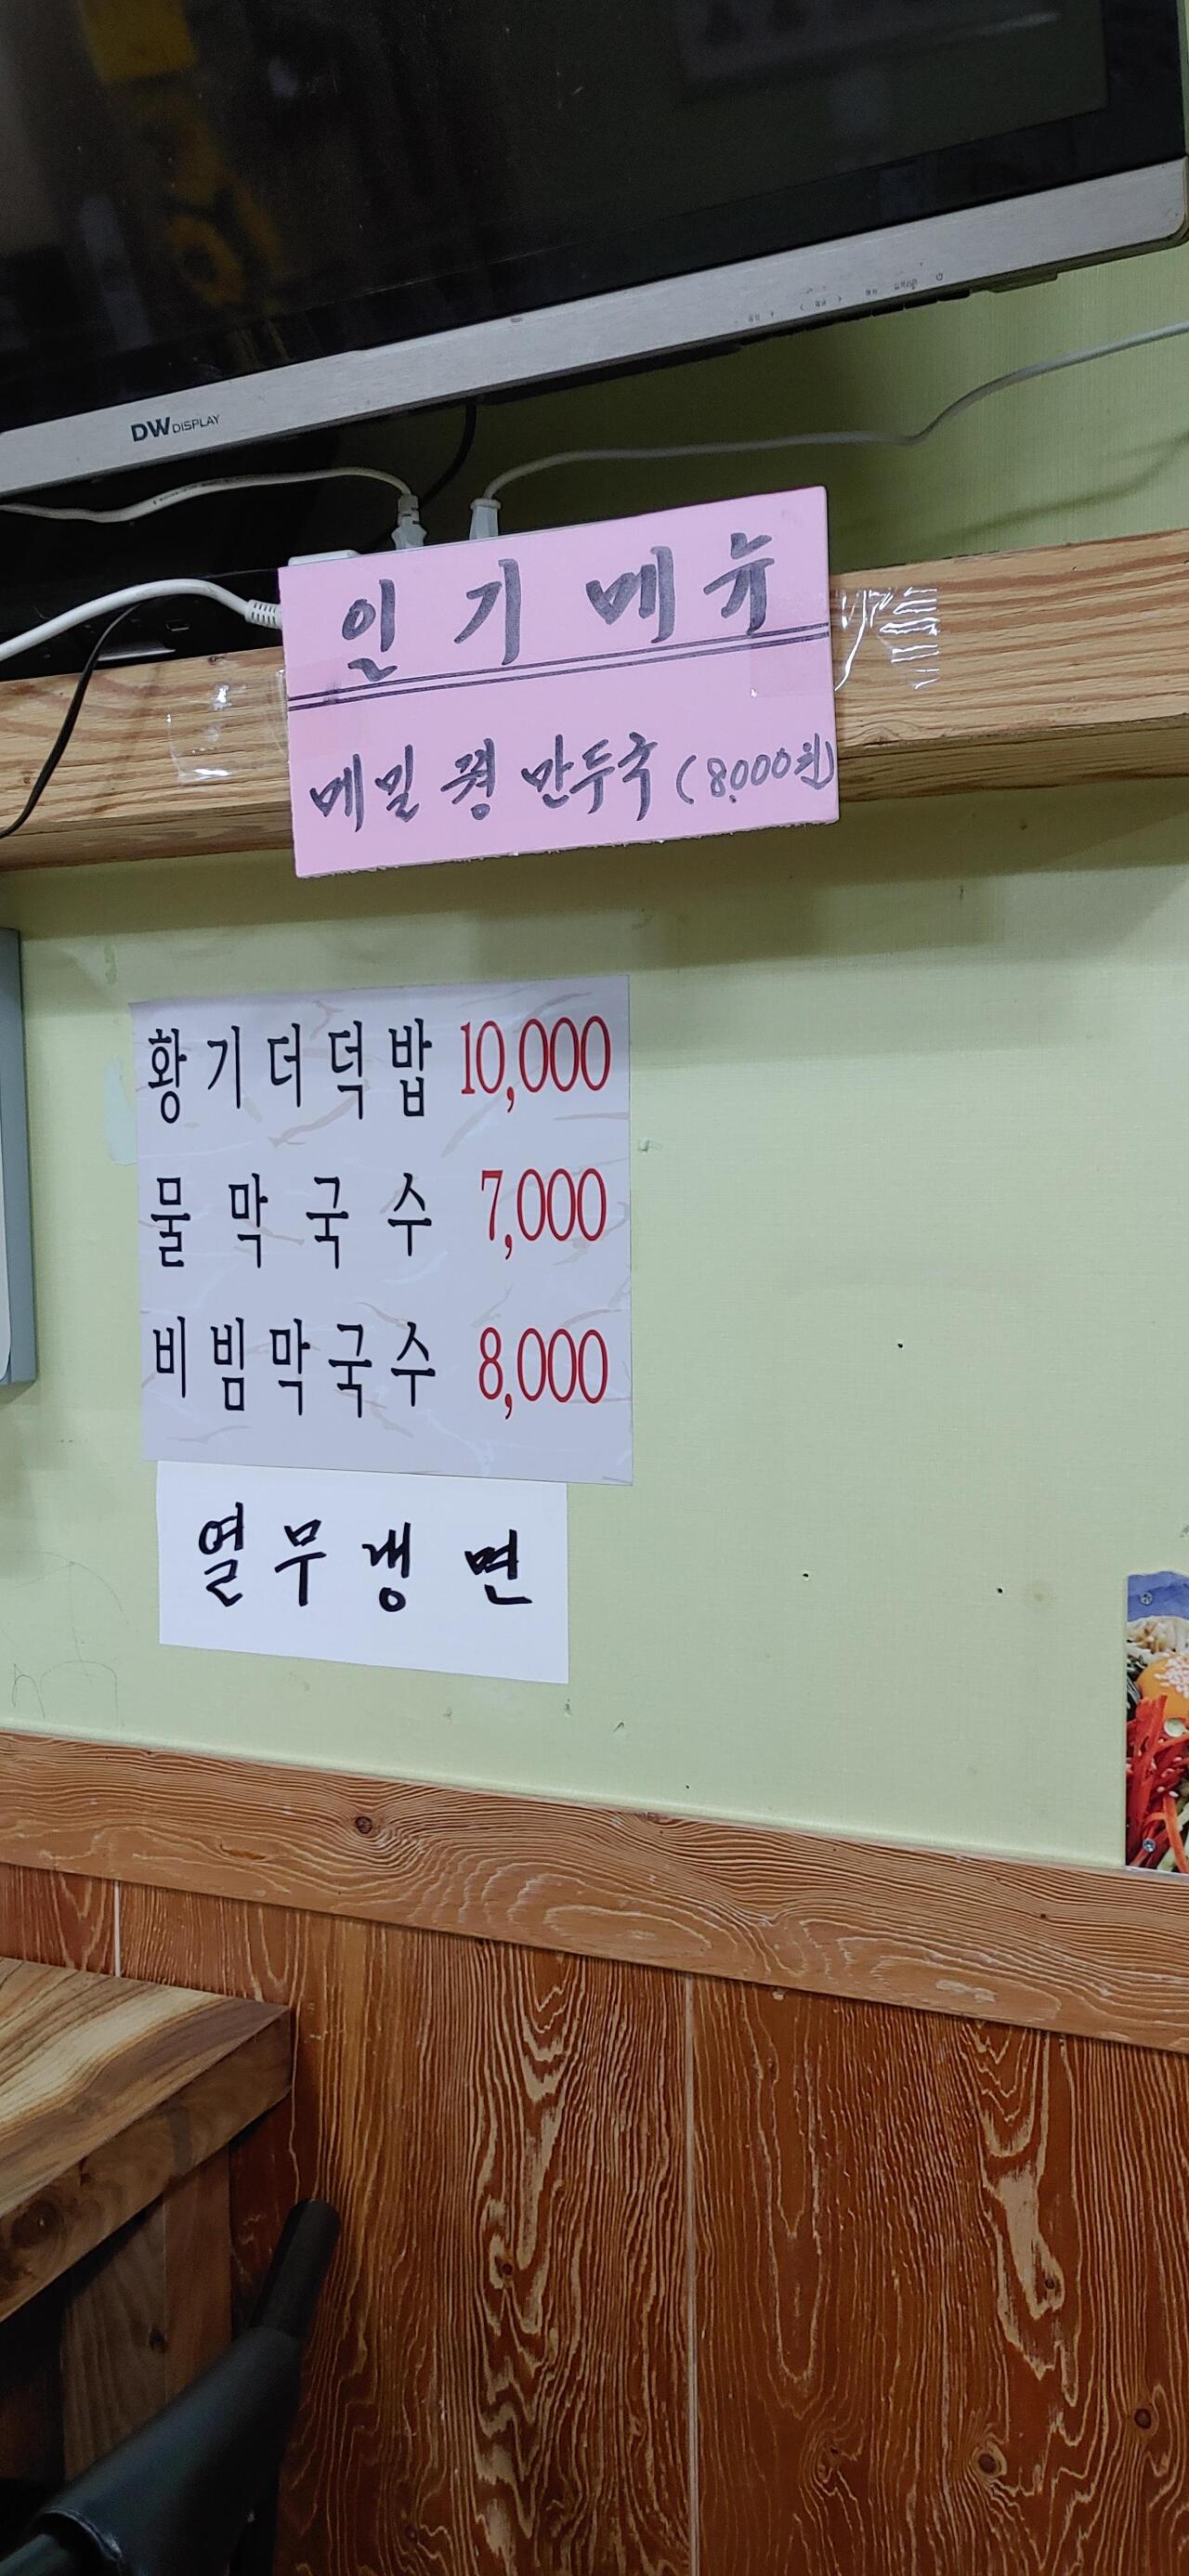 DW DISPLAY
인기메뉴
메밀 꿩 만두국 (8,000원)
황기더덕밥 10,000
물막국수 7,000
비빔막국수 8,000
열무냉면